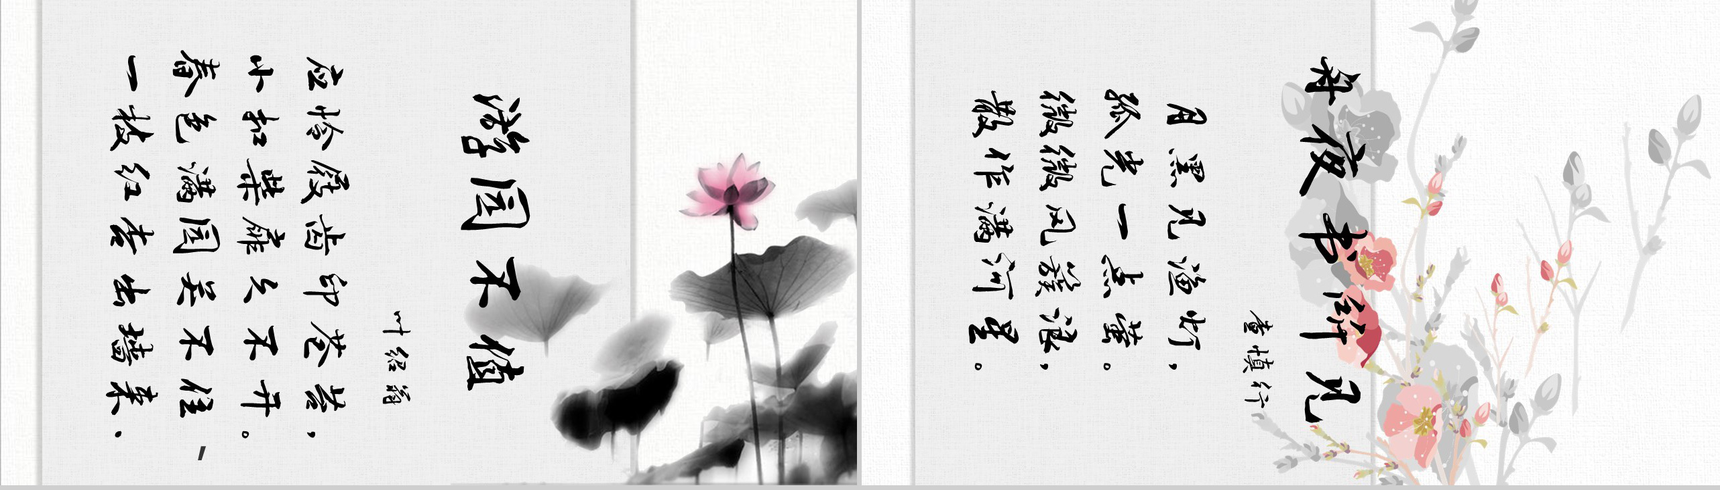 游园不值
叶绍翁
应怜屐齿印苍苔，
小扣柴扉久不开。
春色满园关不住，
一枝红杏出墙来、
舟夜书所见
查慎行
月黑见渔灯，
孤光一点萤。
微微风簇浪，
散作满河星。